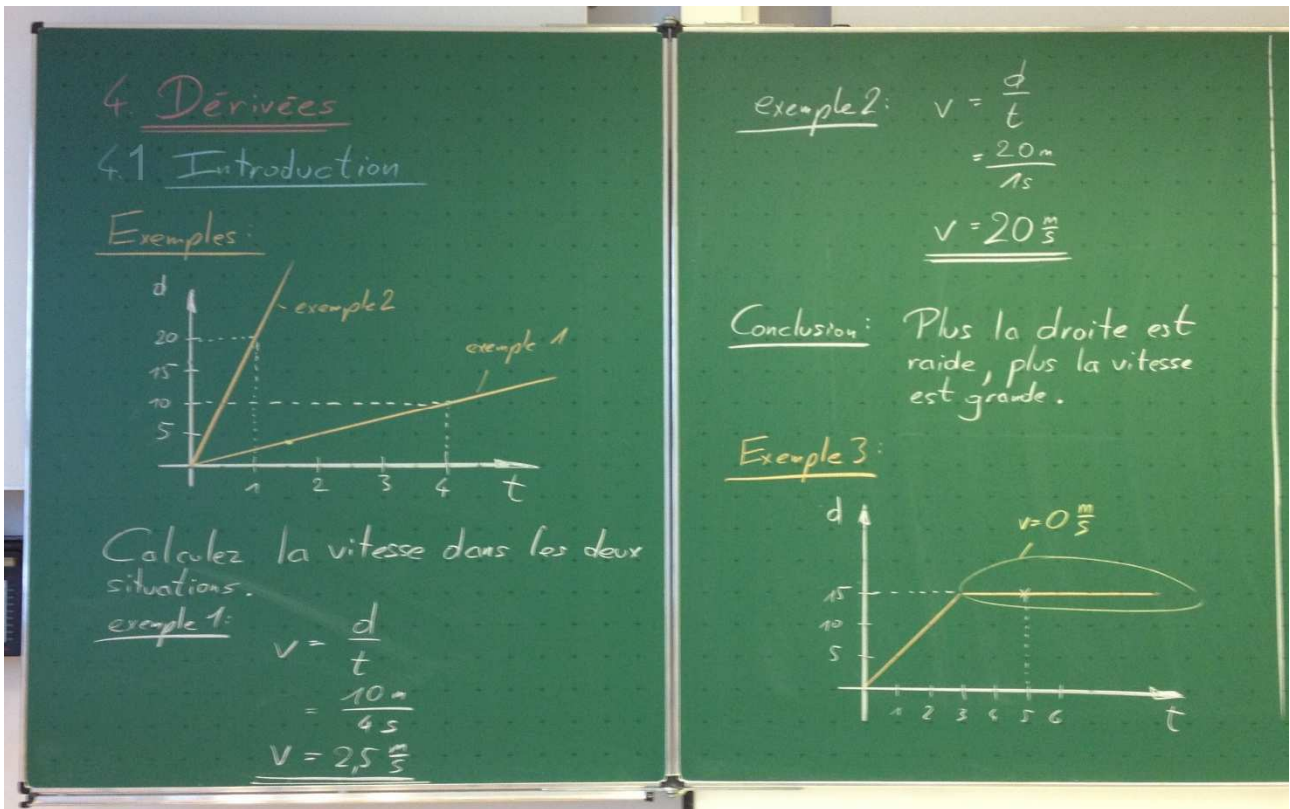 4. Dérivées
4.1 Introduction
Exemples:
d
exemple 2
20
15
10
5
exemple 1
1 2 3 4 t
Calculez la vitesse dans les deux
situations.
exemple 1:
v = d/t
= 10 m/4 s
v = 2,5 m/s
exemple 2: v = d/t
= 20 m/1s
v = 20 m/s
Conclusion: Plus la droite est
raide, plus la vitesse
est grande.
Exemple 3:
d
v = 0 m/s
15
10
5
1 2 3 4 5 6 t